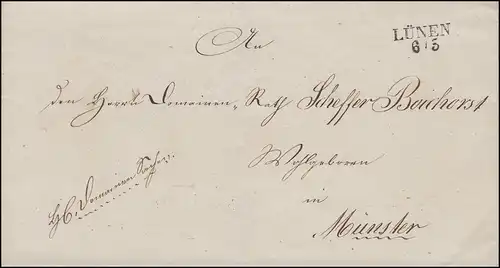 LÜNEN
6/5
An
den Herrn Domainen-Rath Scheffer Boichorst
Wohlgeboren
in
Münster
HC. Domainen Sache.